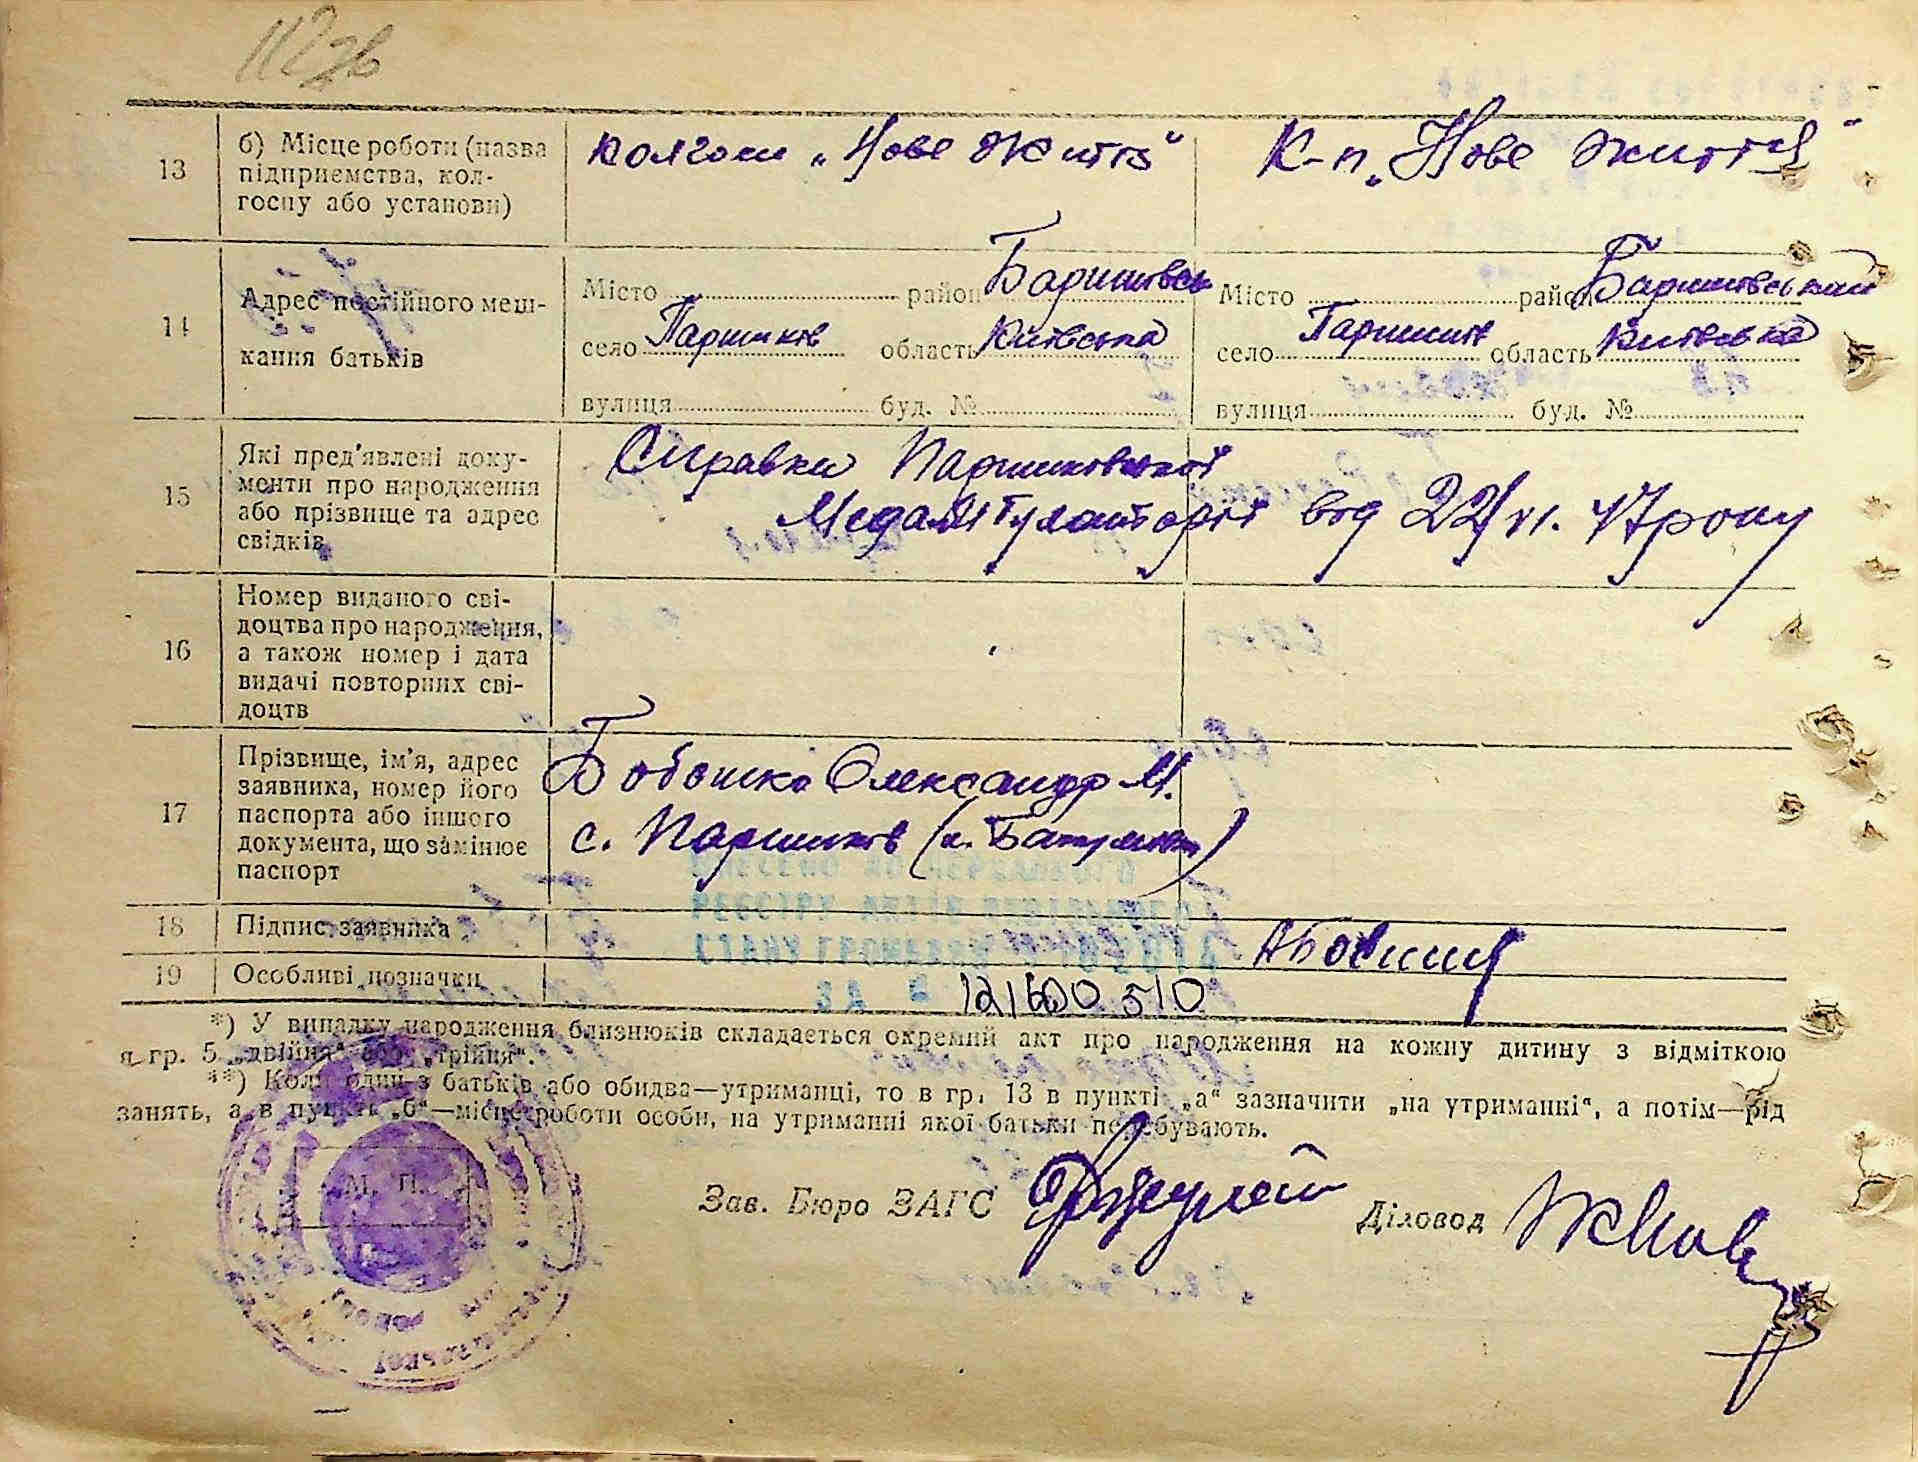 112 зв
13
б) Місце роботи (назва підприємства, колгоспу або установи)
колгосп „Нове Життя"
К-п „Нове життя"
14
Адрес постійного мешкання батьків
Місто район Баришівсь
село Паришків область Київська
вулиця буд. №
Місто район Баришівський
село Паришків область Київська
вулиця буд. №
15
Які пред'явлені документи про народження або прізвище та адрес свідків
Справка Паришківської
Медамбулаторії від 22/VI. 47 року
16
Номер виданого свідоцтва про народження, а також номер і дата видачі повторних свідоцтв
17
Прізвище, ім'я, адрес заявника, номер його паспорта або іншого документа, що замінює паспорт
Бобошко Олександр М.
с. Паришків
18
Підпис заявника
19
Особливі позначки
ВНЕСЕНО ДО ДЕРЖАВНОГО
РЕЄСТРУ АКТІВ ЦИВІЛЬНОГО
СТАНУ ГРОМАДЯН
ЗА № 121600510
*) У випадку народження близнюків складається окремий акт про народження на кожну дитину з відміткою
в гр. 5 „двійня" або „трійня".
**) Коли один з батьків або обидва—утриманці, то в гр. 13 в пункті „а" зазначити „на утриманні", а потім—рід
занять, а в пункті „б"—місце роботи особи, на утриманні якої батьки перебувають.
М. П.
Зав. Бюро ЗАГС
Діловод